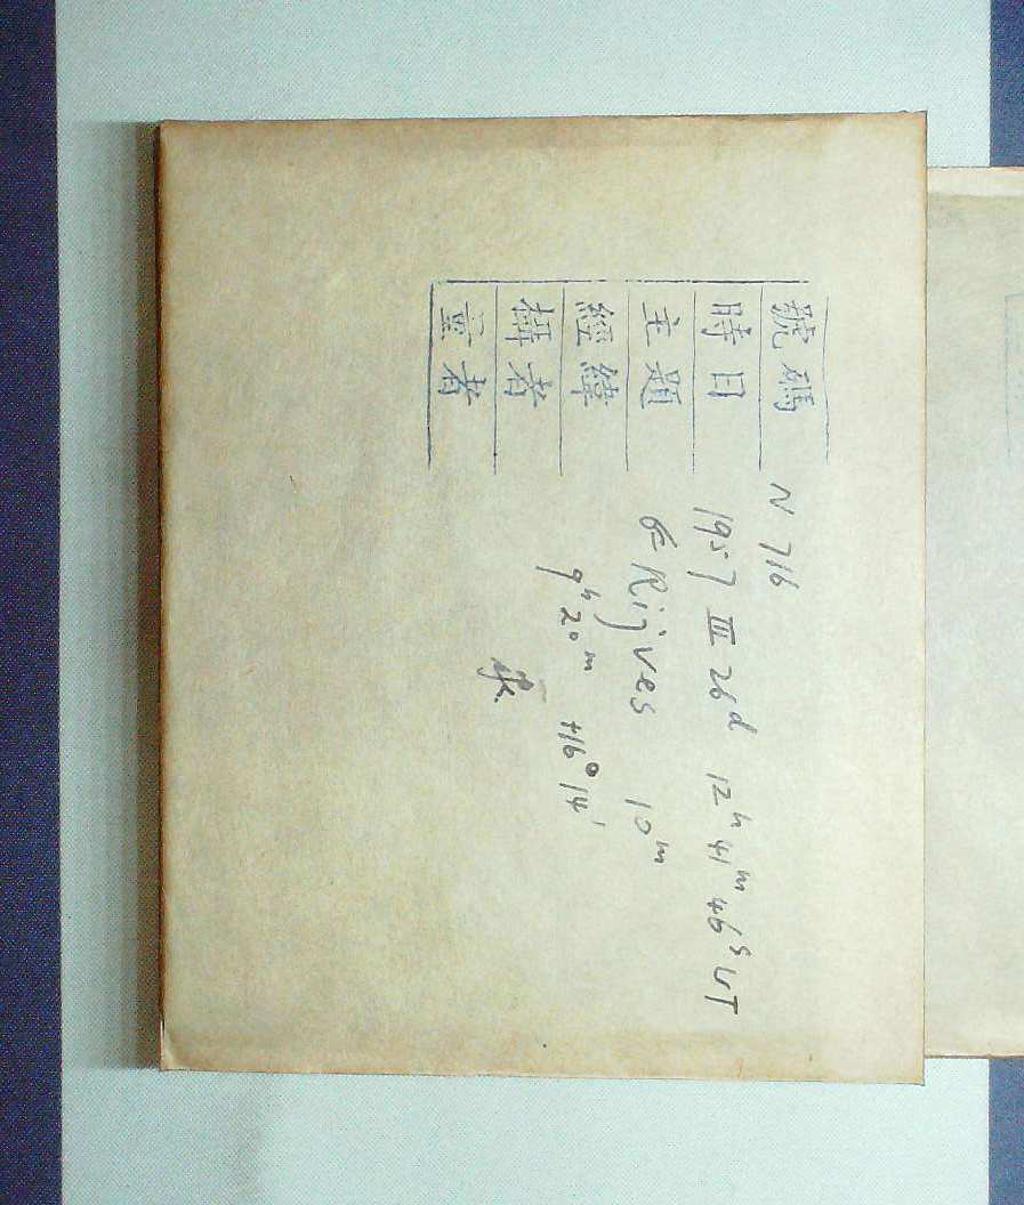 號碼 N 716
時日 1957 III 26d 12h 41m 46s UT
主題 Rijves 10m
經緯 9h 20m +16° 14'
攝者
量者